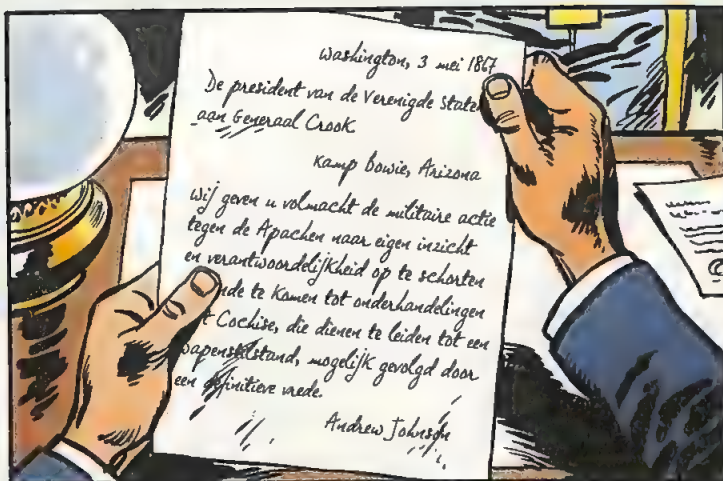 Washington, 3 mei 1867
De president van de Verenigde
aan Generaal Crook
Kamp Bowie, Arizona
Wij geven u volmacht de militaire actie
tegen de Apachen naar eigen inzicht
en verantwoordelijkheid op te schorten
te komen tot onderhandelingen
Cochise, die dienen te leiden tot een
wapenstilstand, mogelijk gevolgd door
een definitieve vrede.
Andrew Johnson